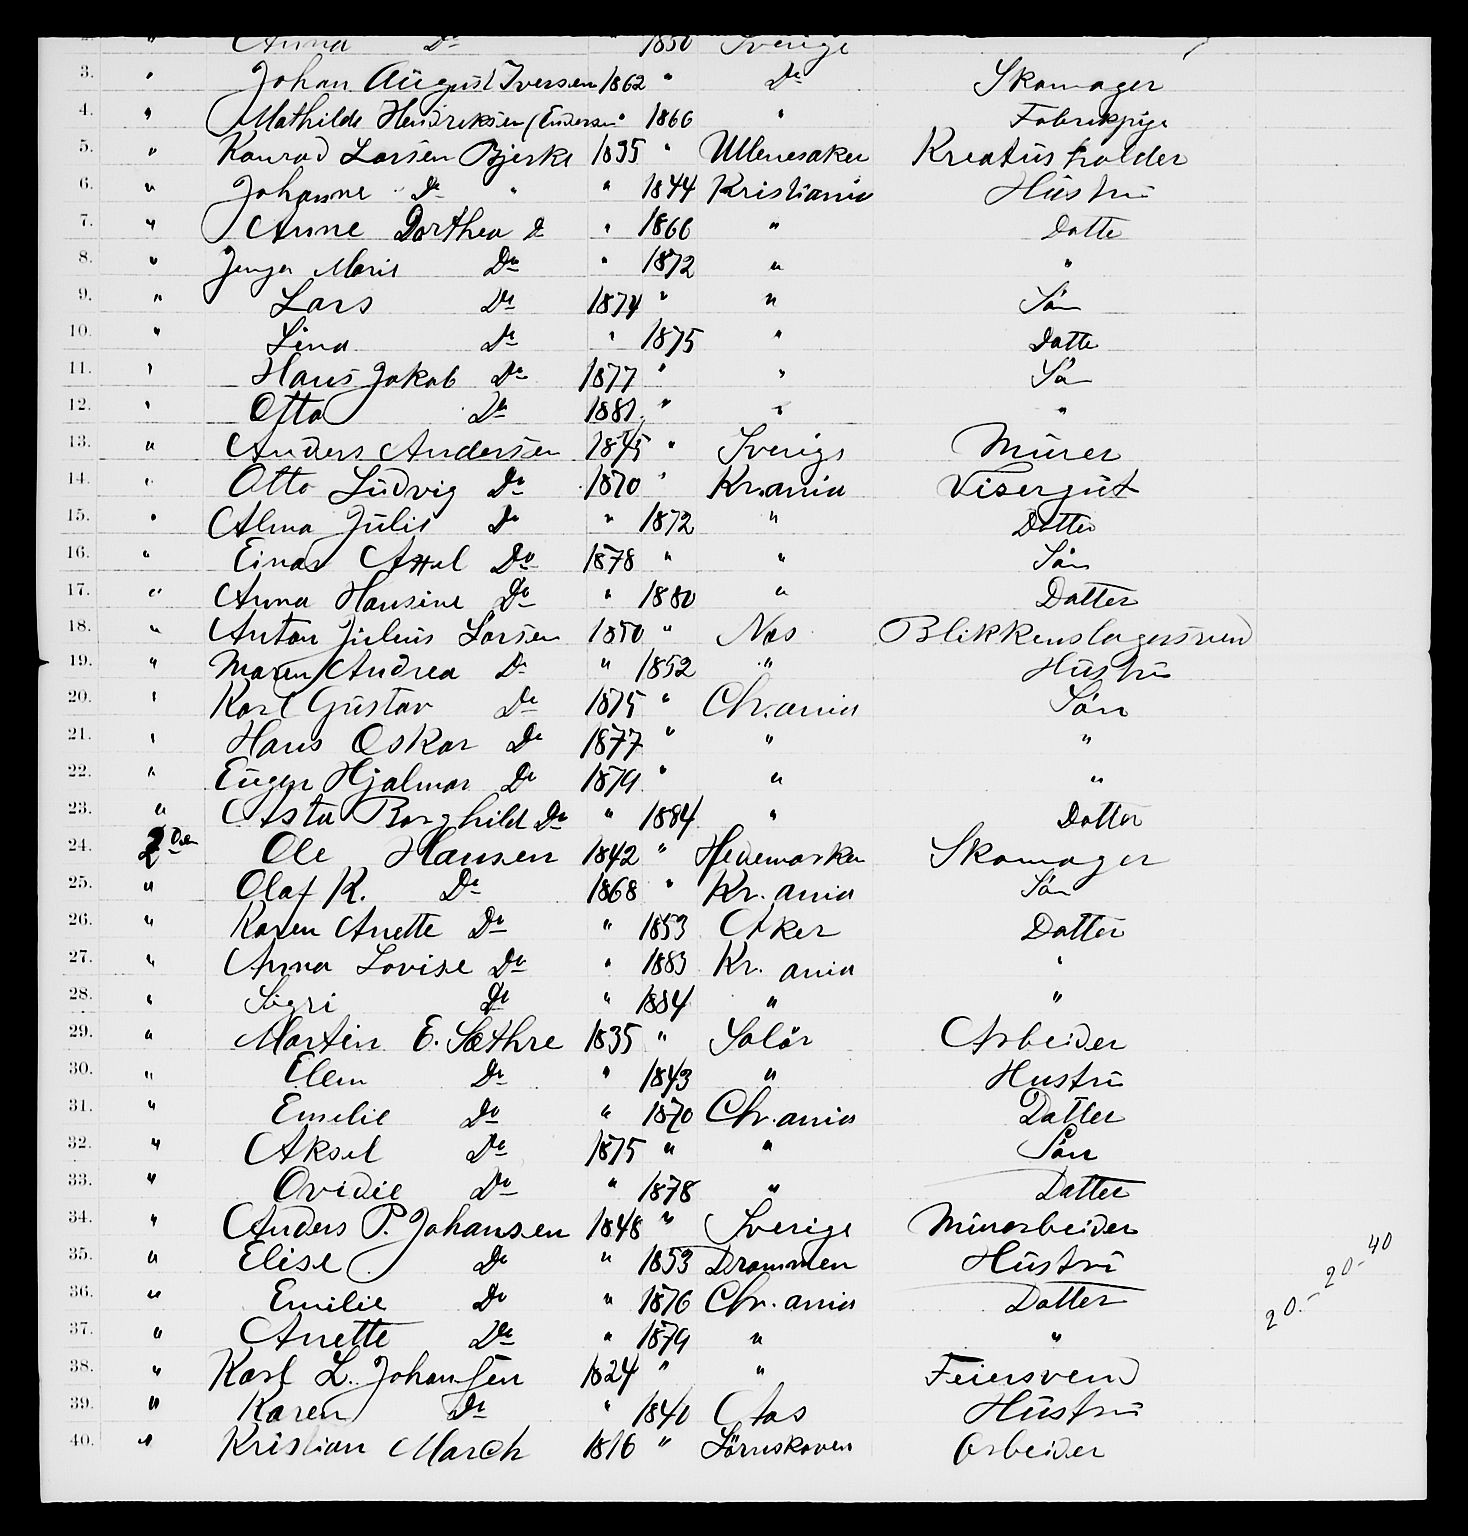 " Anna Do " 1850 Sverige
3. " Johan August Iversen 1862 " Do Skomager
4. " Mathilde Hendreksen (Endersen " 1866 " Fabrikpige
5. " Konrad Larsen Bjerke 1835 " Ullensaker Kreaturholder
6. " Johanne Do " " 1844 Kristiania Hustru
7. " Anne Dorthea Do " 1866 " Datte
8. " Jenger Marie Do " 1872 " "
9. " Lars Do 1874 " " Søn
10. " Lina Do " 1875 " Datte
11. " Hans Jakob Do 1877 " " Sø
12. " Otto Do 1881 " " "
13. " Anders Andersen 1845 " Sverige Murer
14. " Otto Ludvig Do 1870 " Kr.ania Visergut
15. " Alma Julie Do " 1872 " Datter
16. " Einar Axel Do 1878 " " Søn
17. " Anna Hansine Do " 1880 " Datter
18. " Anton Julius Larsen 1850 " Nes Blikkenslagersvend
19. " Maren Andrea Do " 1852 " Hustru
20. " Karl Gustav Do 1875 " Chr.ania Søn
21. " Hans Oskar Do 1877 " " "
22. " Eugen Hjalmar Do 1879 " " "
23. " Asta Borghild Do " 1884 " Datter
24. 2den Ole Hansen 1842 " Hedemarken Skomager
25. " Olaf K. Do 1868 " Kr.ania Søn
26. " Karen Anette Do " 1853 Aker Datter
27. " Anna Lovise Do " 1883 Kr.ania "
28. " Sigri Do " 1884 " "
29. " Martin E. Sæthre 1835 " Solør Arbeider
30. " Elen Do " 1843 " Hustru
31. " Emelie Do " 1870 Chr.ania Datter
32. " Aksel Do 1875 " " Søn
33. " Ovidie Do " 1878 " Datter
34. " Anders P. Johansen 1848 " Sverige Murarbeider
35. " Elise Do " 1853 Drammen Hustru
36. " Emilie Do " 1876 Chr.ania Datter
20.- 20- 40
37. " Anette Do " 1879 " "
38. " Karl L. Johansen 1824 " " Feiersvend
39. " Karen Do " 1840 Aas Hustru
40. " Kristian March 1816 " Lørnskoven Arbeider